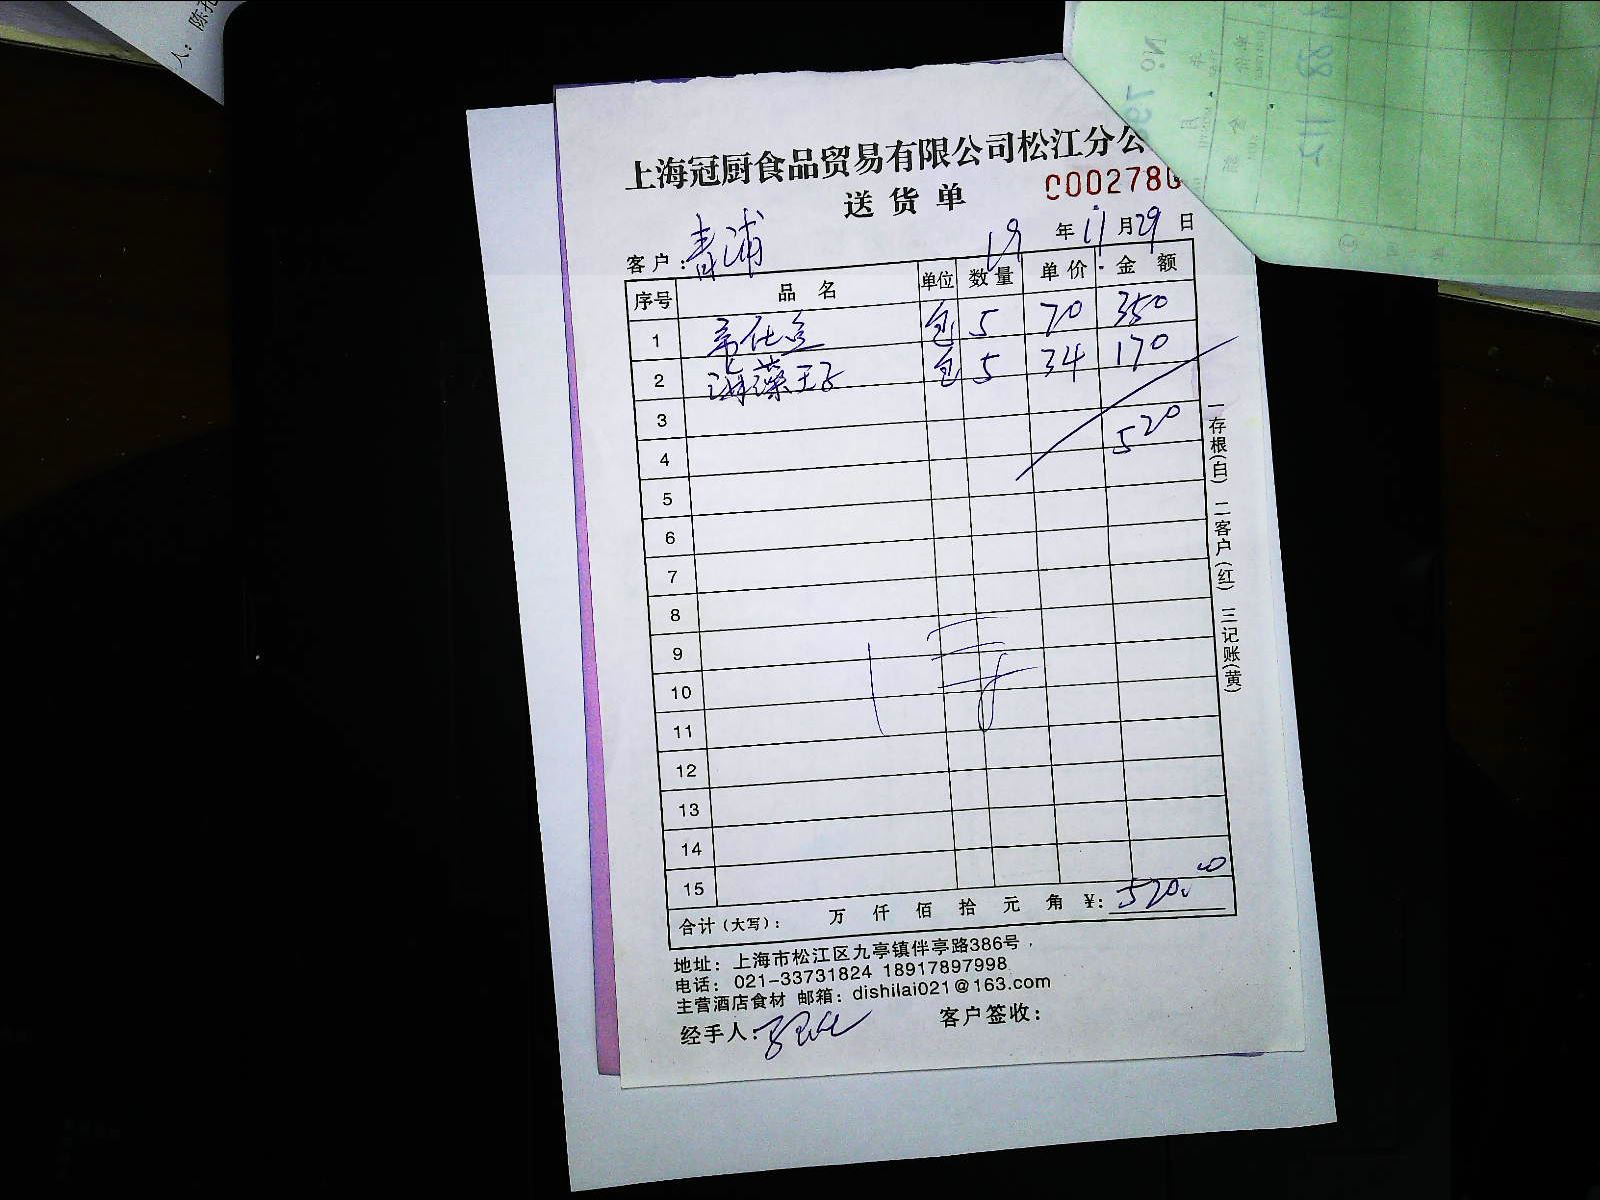 人：陈
上海冠厨食品贸易有限公司松江分公
送货单 0002780
客户：青浦 19年11月29日
序号 品名 单位 数量 单价 金额
1 包 5 70 350
2 海藻 包 5 34 170
3 520
4
5
6
7
8
9
10
11
12
13
14
15
合计（大写）： 万 仟 佰 拾 元 角 ¥：520.00
地址：上海市松江区九亭镇伴亭路386号
电话：021-33731824 18917897998
主营酒店食材 邮箱：dishilai021@163.com
经手人： 客户签收：
一存根（白） 二客户（红） 三记账（黄）